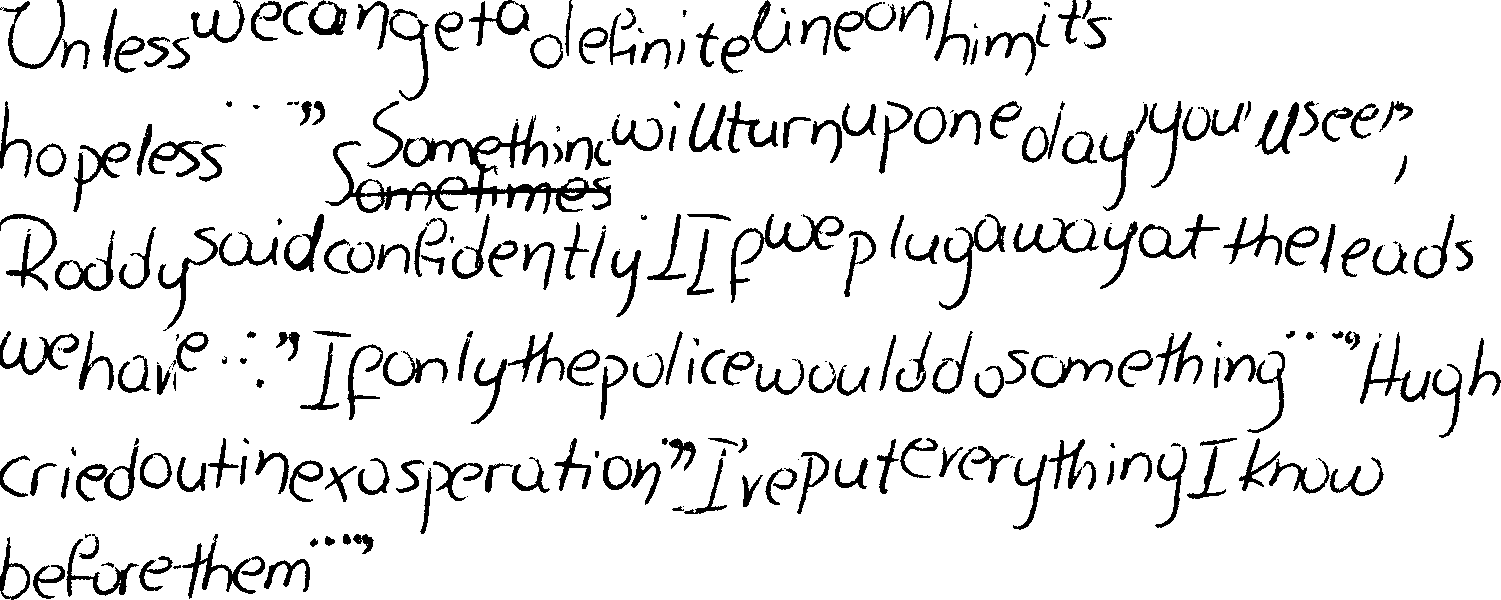 Unless we can get a definite line on him it's
hopeless ..." Something will turn up one day, you'll see,"
Roddy said confidently. "If we plug away at the leads
we have ..." If only the police would do something ..." Hugh
cried out in exasperation." I've put everything I know
before them ..."